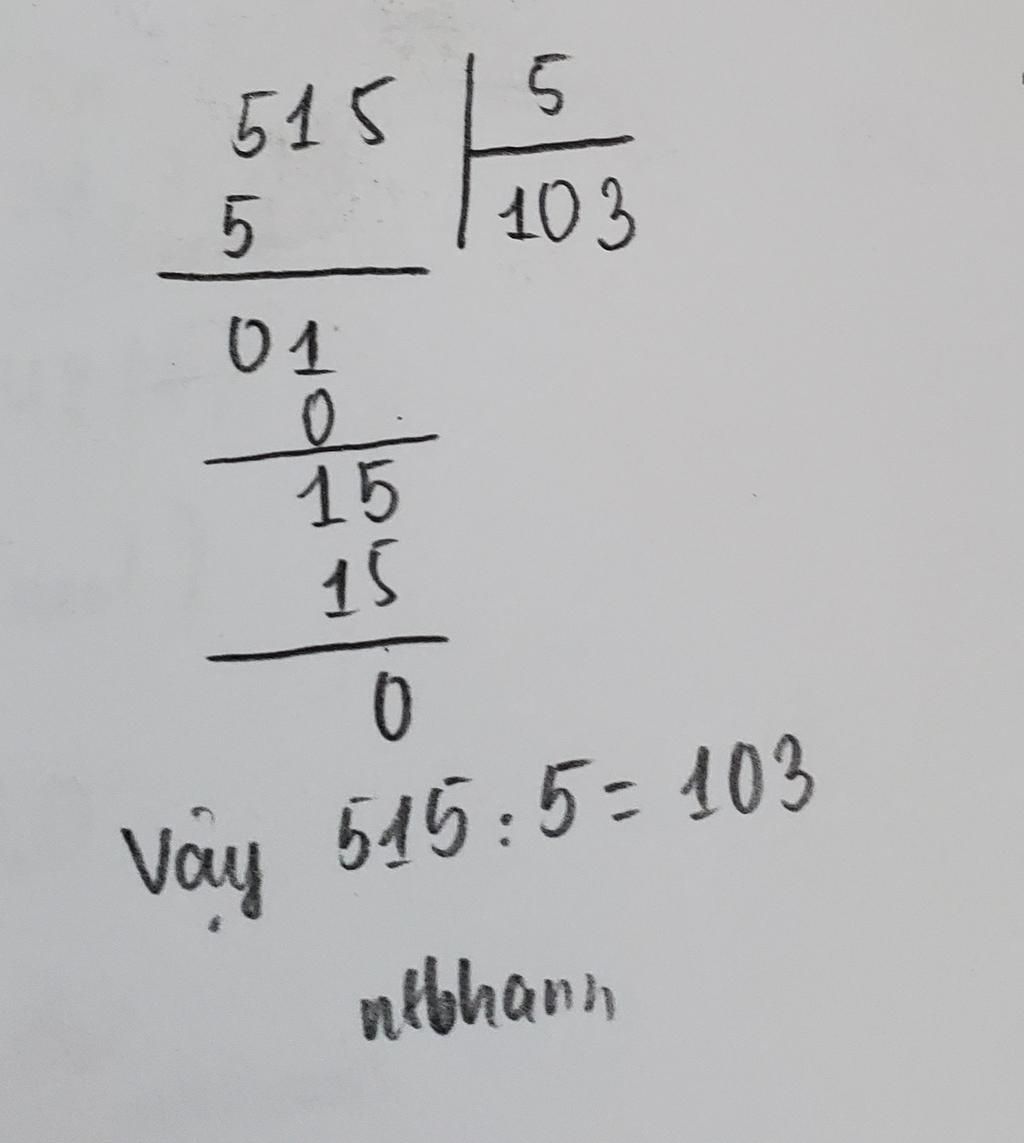 515 | 5
5 103
01
0
15
15
0
Vậy 515 : 5 = 103
ntbhann